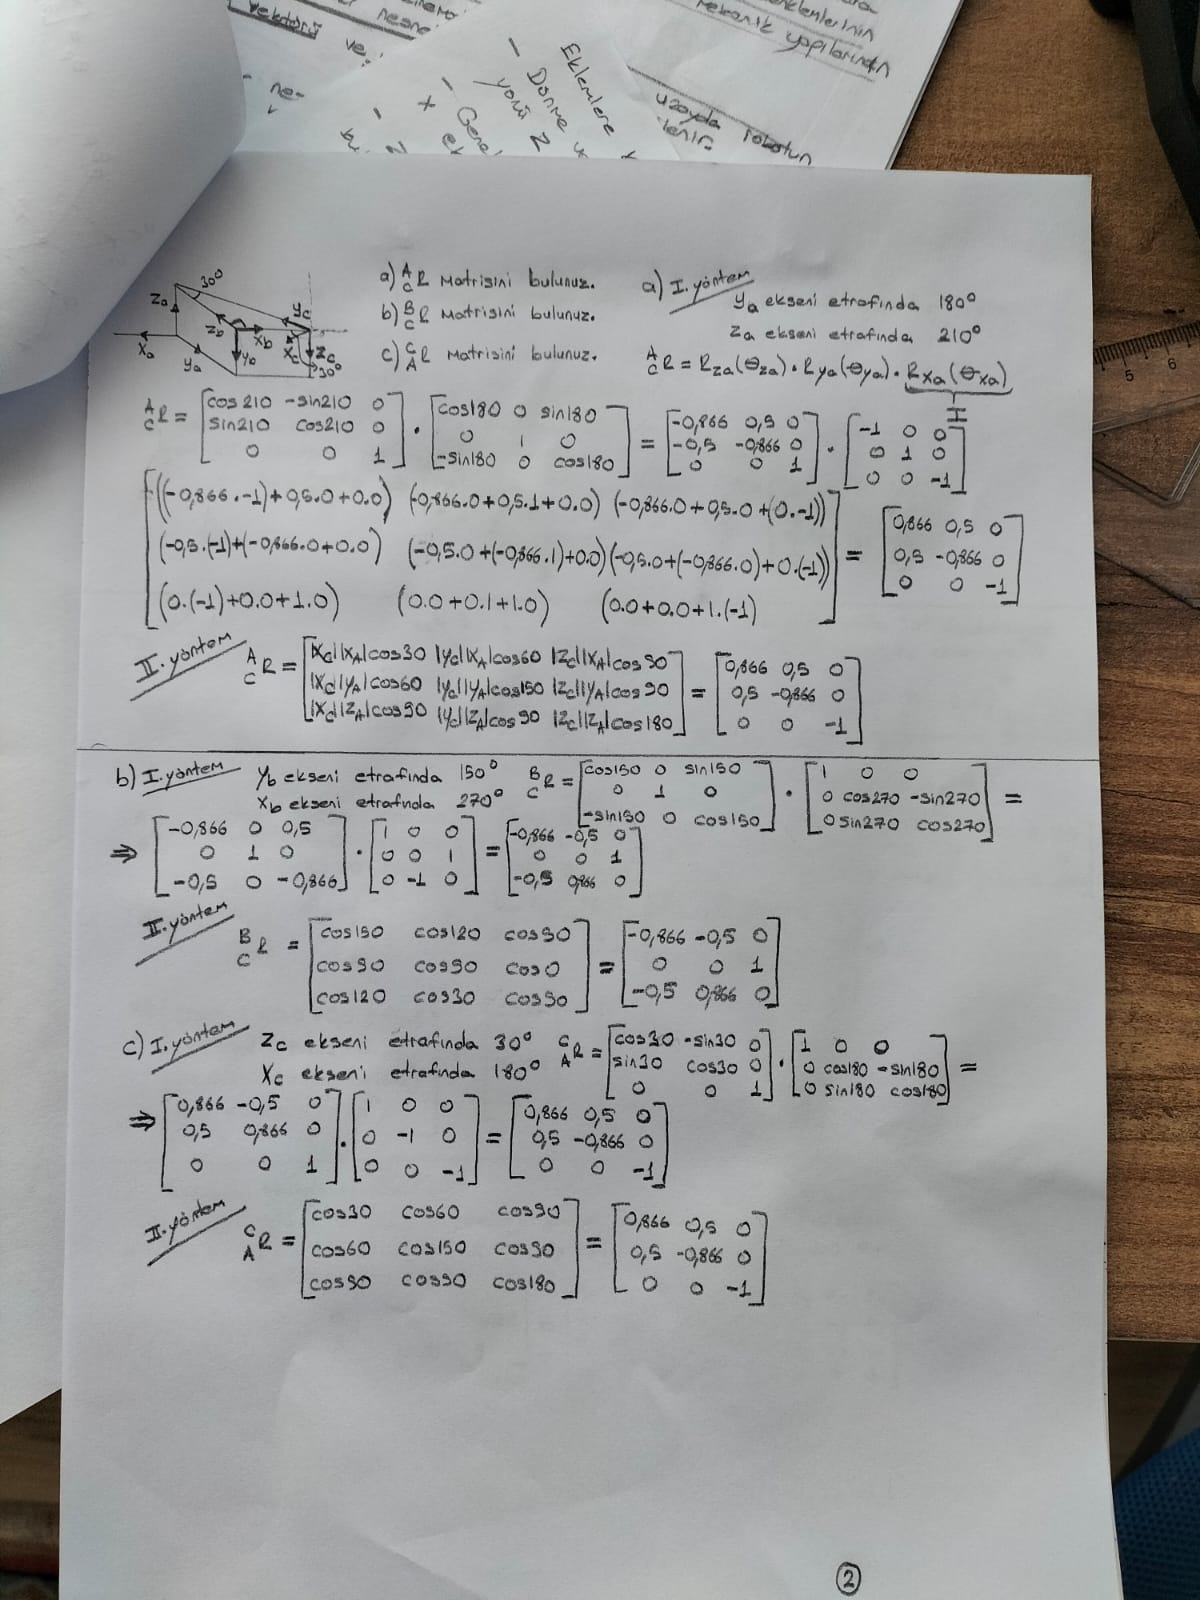 eklemlerinin
mekanik yapılarından
uzayda robotun
Eklemlere
- Dönme
yönü Z
- Genel
x
vektörü ve
ne-
30°
Za
Xa
ya
Zb
Xb
yb
yc
Xc
Zc
30°
a) A/C R Matrisini bulunuz.
b) B/C R Matrisini bulunuz.
c) C/A R Matrisini bulunuz.
a) I. yöntem
ya ekseni etrafında 180°
za ekseni etrafında 210°
A/C R = Rza(θza) . Rya(θya) . Rxa(θxa)
I
A/C R = [cos210 -sin210 0; sin210 cos210 0; 0 0 1] . [cos180 0 sin180; 0 1 0; -sin180 0 cos180] = [-0,866 0,5 0; -0,5 -0,866 0; 0 0 1] . [-1 0 0; 0 1 0; 0 0 -1]
[((-0,866.-1)+0,5.0+0.0) (-0,866.0+0,5.1+0.0) (-0,866.0+0,5.0+(0.-1))
(-0,5.(-1)+(-0,866.0+0.0) (-0,5.0+(-0,866.1)+0.0) (-0,5.0+(-0,866.0)+0.(-1))
(0.(-1)+0.0+1.0) (0.0+0.1+1.0) (0.0+0.0+1.(-1)] = [0,866 0,5 0; 0,5 -0,866 0; 0 0 -1]
II. yöntem
A/C R = [|Xc||XA|cos30 |yc||XA|cos60 |Zc||XA|cos90; |Xc||yA|cos60 |yc||yA|cos150 |Zc||yA|cos90; |Xc||ZA|cos90 |yc||ZA|cos90 |Zc||ZA|cos180] = [0,866 0,5 0; 0,5 -0,866 0; 0 0 -1]
b) I. yöntem yb ekseni etrafında 150°
xb ekseni etrafında 270°
B/C R = [cos150 0 sin150; 0 1 0; -sin150 0 cos150] . [1 0 0; 0 cos270 -sin270; 0 sin270 cos270] =
⇒ [-0,866 0 0,5; 0 1 0; -0,5 0 -0,866] . [1 0 0; 0 0 1; 0 -1 0] = [-0,866 -0,5 0; 0 0 1; -0,5 0,866 0]
II. yöntem
B/C R = [cos150 cos120 cos90; cos90 cos90 cos0; cos120 cos30 cos90] = [-0,866 -0,5 0; 0 0 1; -0,5 0,866 0]
c) I. yöntem Zc ekseni etrafında 30°
Xc ekseni etrafında 180°
C/A R = [cos30 -sin30 0; sin30 cos30 0; 0 0 1] . [1 0 0; 0 cos180 -sin180; 0 sin180 cos180] =
⇒ [0,866 -0,5 0; 0,5 0,866 0; 0 0 1] . [1 0 0; 0 -1 0; 0 0 -1] = [0,866 0,5 0; 0,5 -0,866 0; 0 0 -1]
II. yöntem
C/A R = [cos30 cos60 cos90; cos60 cos150 cos90; cos90 cos90 cos180] = [0,866 0,5 0; 0,5 -0,866 0; 0 0 -1]
2
5
6